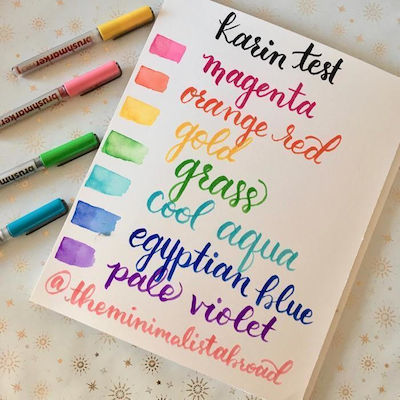 Karin test
magenta
orange red
gold
grass
cool aqua
egyptian blue
pale violet
@theminimalistabroad
brushmarker
brushmarker
brushmarker
brushmarker